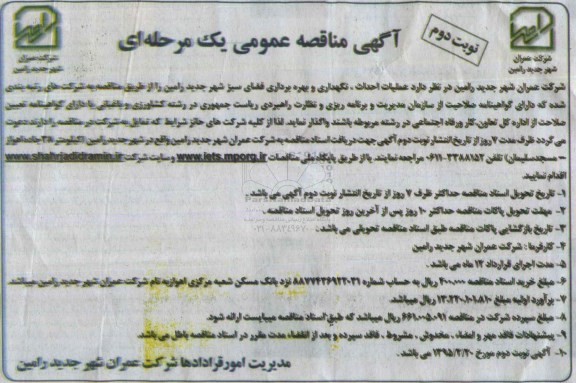 شرکت عمران
شهر جدید رامین
نوبت دوم
آگهی مناقصه عمومی یک مرحله‌ای
شرکت عمران
شهر جدید رامین
شرکت عمران شهر جدید رامین در نظر دارد عملیات احداث ، نگهداری و بهره برداری فضای سبز شهر جدید رامین را از طریق مناقصه به شرکت های رتبه بندی
شده که دارای گواهینامه صلاحیت از سازمان مدیریت و برنامه ریزی و نظارت راهبردی ریاست جمهوری در رشته کشاورزی و باغبانی یا دارای گواهینامه تعیین
صلاحیت از اداره کل تعاون،کار ورفاه اجتماعی در رشته مربوطه باشند واگذار نمایند. لذا از کلیه شرکت های حائز شرایط که تمایل به شرکت در مناقصه را دارند دعوت
می گردد ظرف مدت ۷ روز از تاریخ انتشار نوبت دوم آگهی جهت دریافت اسناد مناقصه به شرکت عمران شهر جدید رامین واقع در شهر جدید رامین (کیلومتر ۳۵ جاده اهواز
– مسجدسلیمان) تلفن ۳۳۸۸۱۵۳-۰۶۱۱ مراجعه نمایند. یا از طریق پایگاه ملی مناقصات www.iets.mporg.ir وسایت شرکت www.shahrjadidramin.ir
اقدام نمایید
۱- تاریخ تحویل اسناد مناقصه حداکثر ظرف ۷ روز از تاریخ انتشار نوبت دوم آگهی می باشد.
۲- مهلت تحویل پاکات مناقصه حداکثر ۱۰ روز پس از آخرین روز تحویل اسناد مناقصه .
۳- تاریخ بازگشایی پاکات مناقصه طبق اسناد مناقصه تحویلی می باشد :
۴- کارفرما : شرکت عمران شهر جدید رامین
۵- مدت اجرای قرارداد ۱۲ ماه می باشد .
۶- مبلغ خرید اسناد مناقصه ۴۰۰.۰۰۰ ریال به حساب شماره نزد بانک مسکن شعبه مرکزی اهواز به نام شرکت عمران شهر جدید رامین میباشد.
۷- برآورد اولیه مبلغ ۱۳.۲۲۰.۱۰۱.۸۱۰ ریال میباشد.
۸- مبلغ سپرده شرکت در مناقصه ۶۶۱.۰۰۵.۰۹۱ ریال میباشد که طبق اسناد مناقصه میبایست ارائه شود.
۹- پیشنهادات فاقد مهر و امضاء، مخدوش ، مشروط ، فاقد سپرده و بعد از انقضاء مدت مقرر در اسناد مناقصه باطل می باشد.
۱۰- آگهی نوبت دوم مورخ ۱۳۹۵/۲/۲۰ می باشد.
مدیریت امور قراردادها شرکت عمران شهر جدید رامین